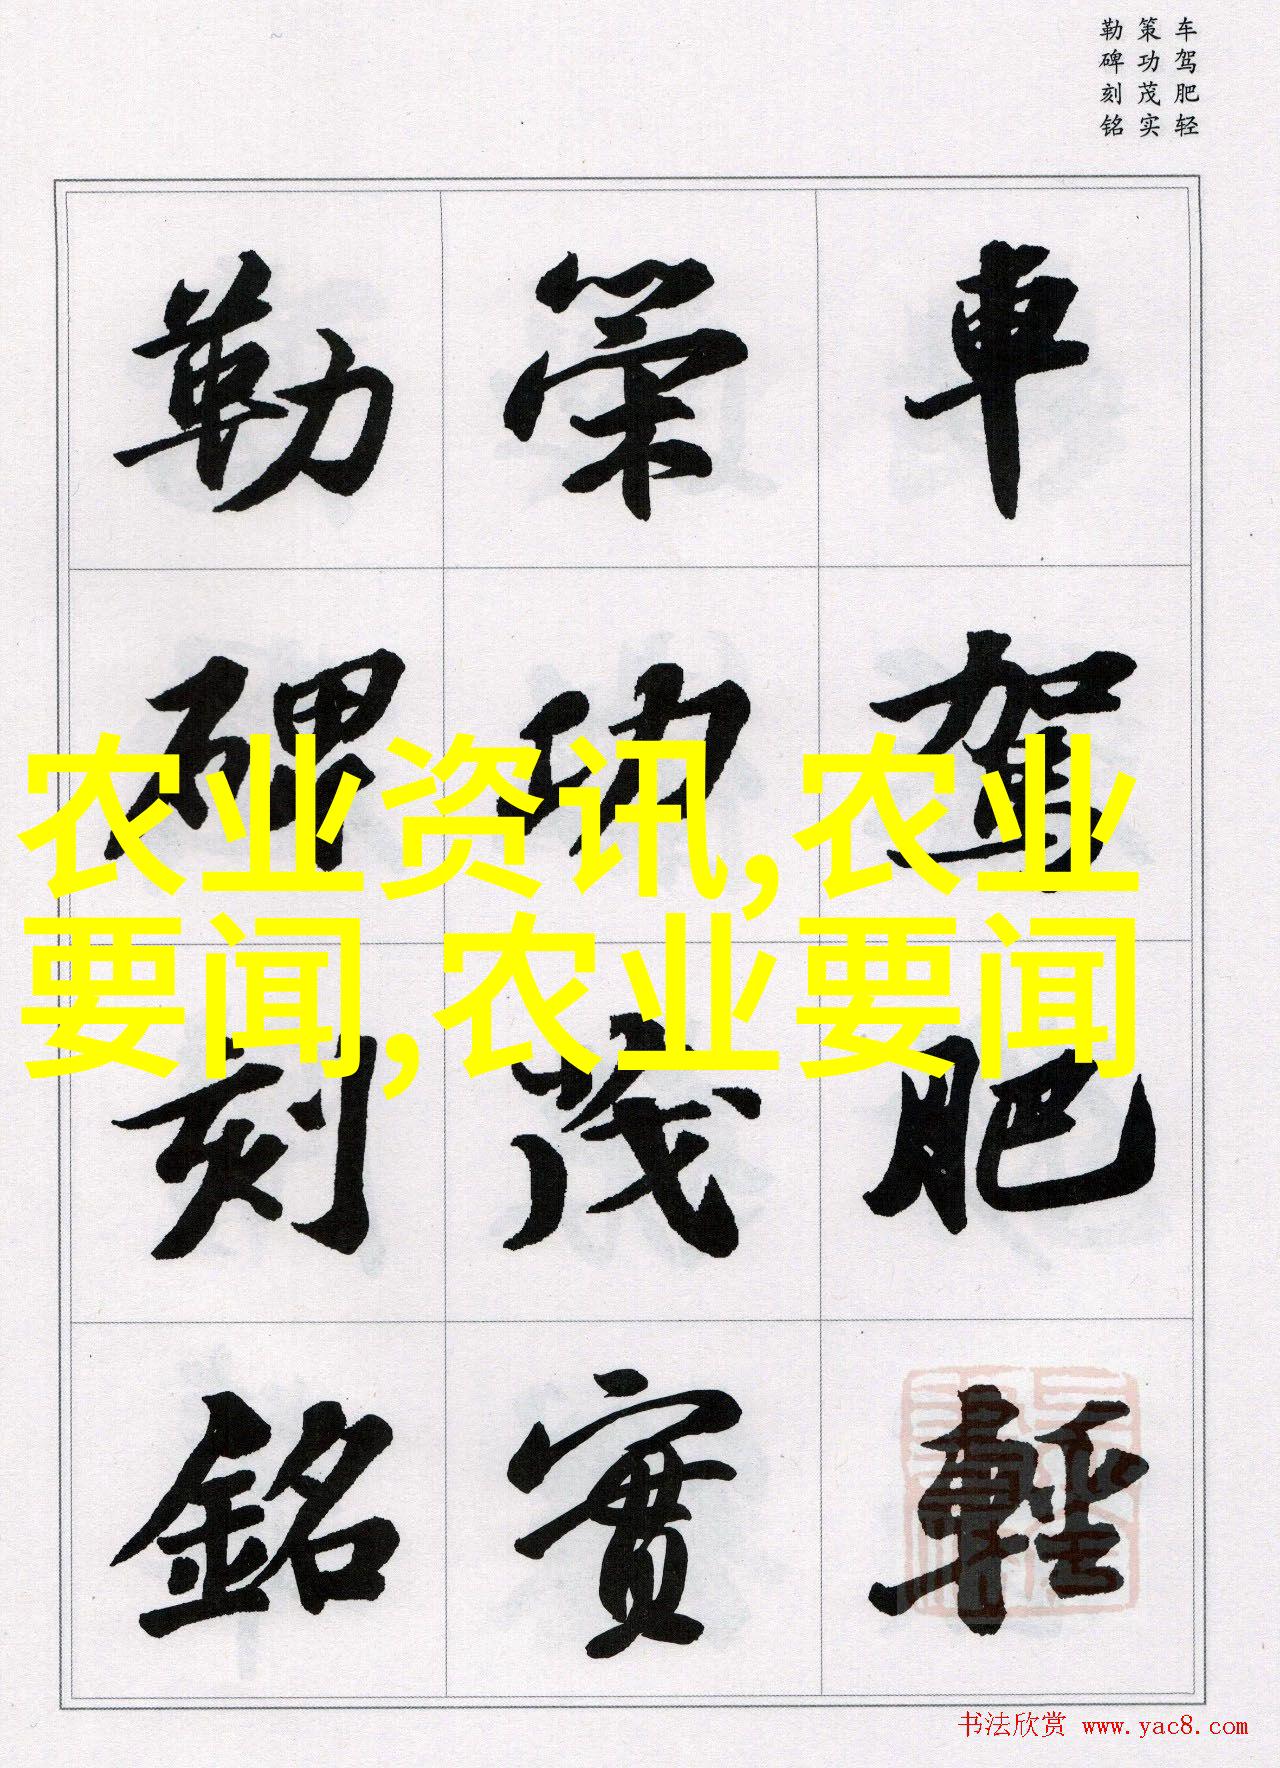 车驾肥轻
策功茂实
勒碑刻铭
車駕肥輕
策功茂實
勒碑刻銘
农业资讯,农业
要闻,农业要闻
书法欣赏 www.yac8.com